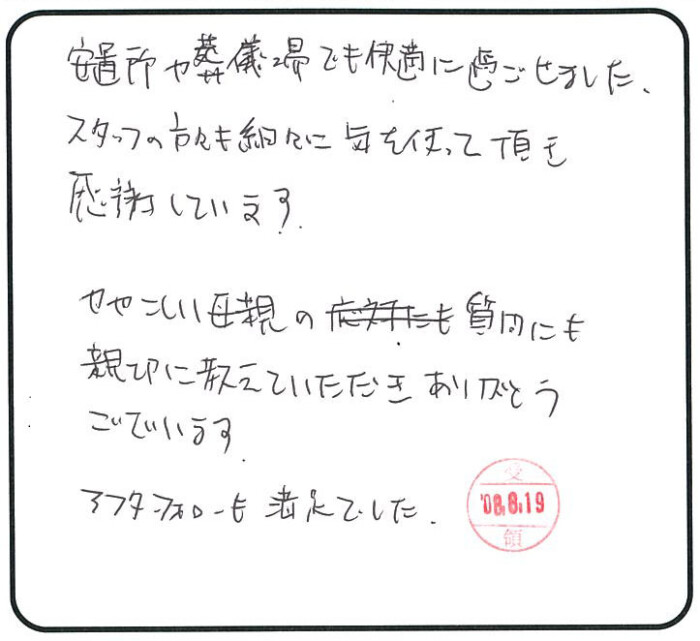 安置所や葬儀場でも快適に過ごせました、
スタッフの方々も細々に気を使って頂き
感謝しています.
ややこしい母親の応対にも質問にも
親切に教えていただきありがとう
ございます.
アフターフォローも満足でした.
受
'08.8.19
領